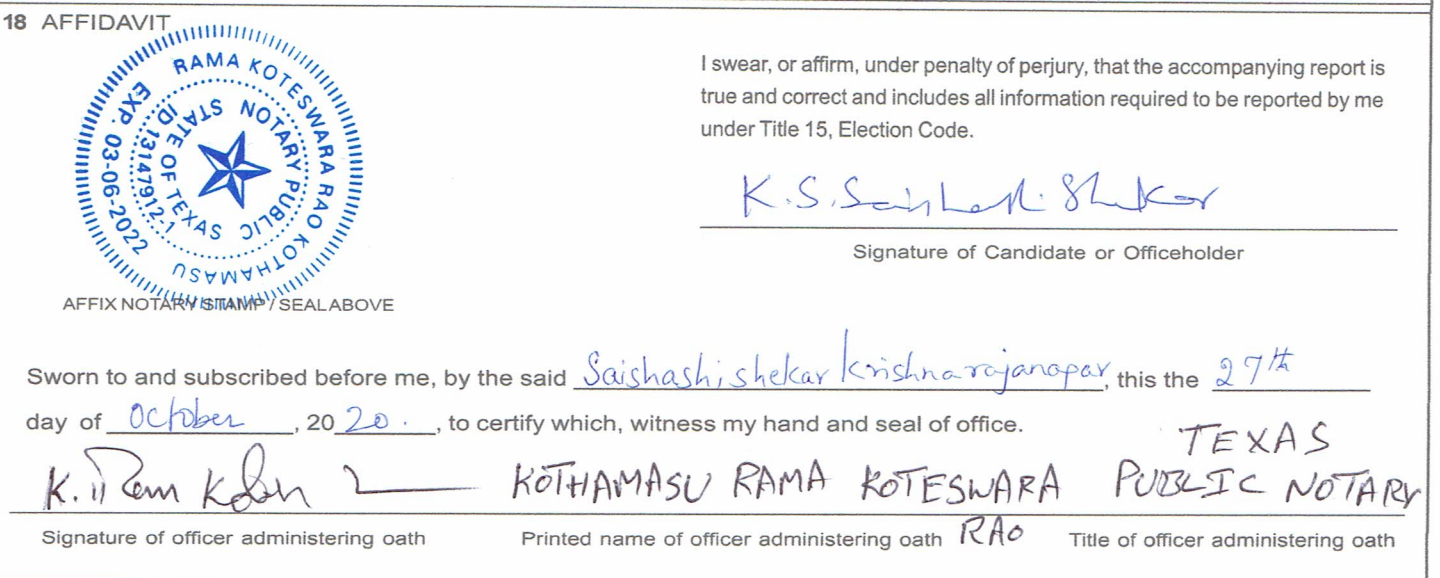 18 AFFIDAVIT
RAMA KOTESWARA RAO KOTHAMASU
NOTARY PUBLIC
STATE OF TEXAS
ID 13147912-1
EXP. 03-06-2022
AFFIX NOTARY STAMP / SEAL ABOVE
I swear, or affirm, under penalty of perjury, that the accompanying report is
true and correct and includes all information required to be reported by me
under Title 15, Election Code.
K.S.
Shekar
Signature of Candidate or Officeholder
Sworn to and subscribed before me, by the said Saishashishekar Krishnarajanagar, this the 27th
day of October, 20 20., to certify which, witness my hand and seal of office.
K.
KOTHAMASU RAMA KOTESWARA RAO
TEXAS
PUBLIC NOTARY
Signature of officer administering oath Printed name of officer administering oath Title of officer administering oath